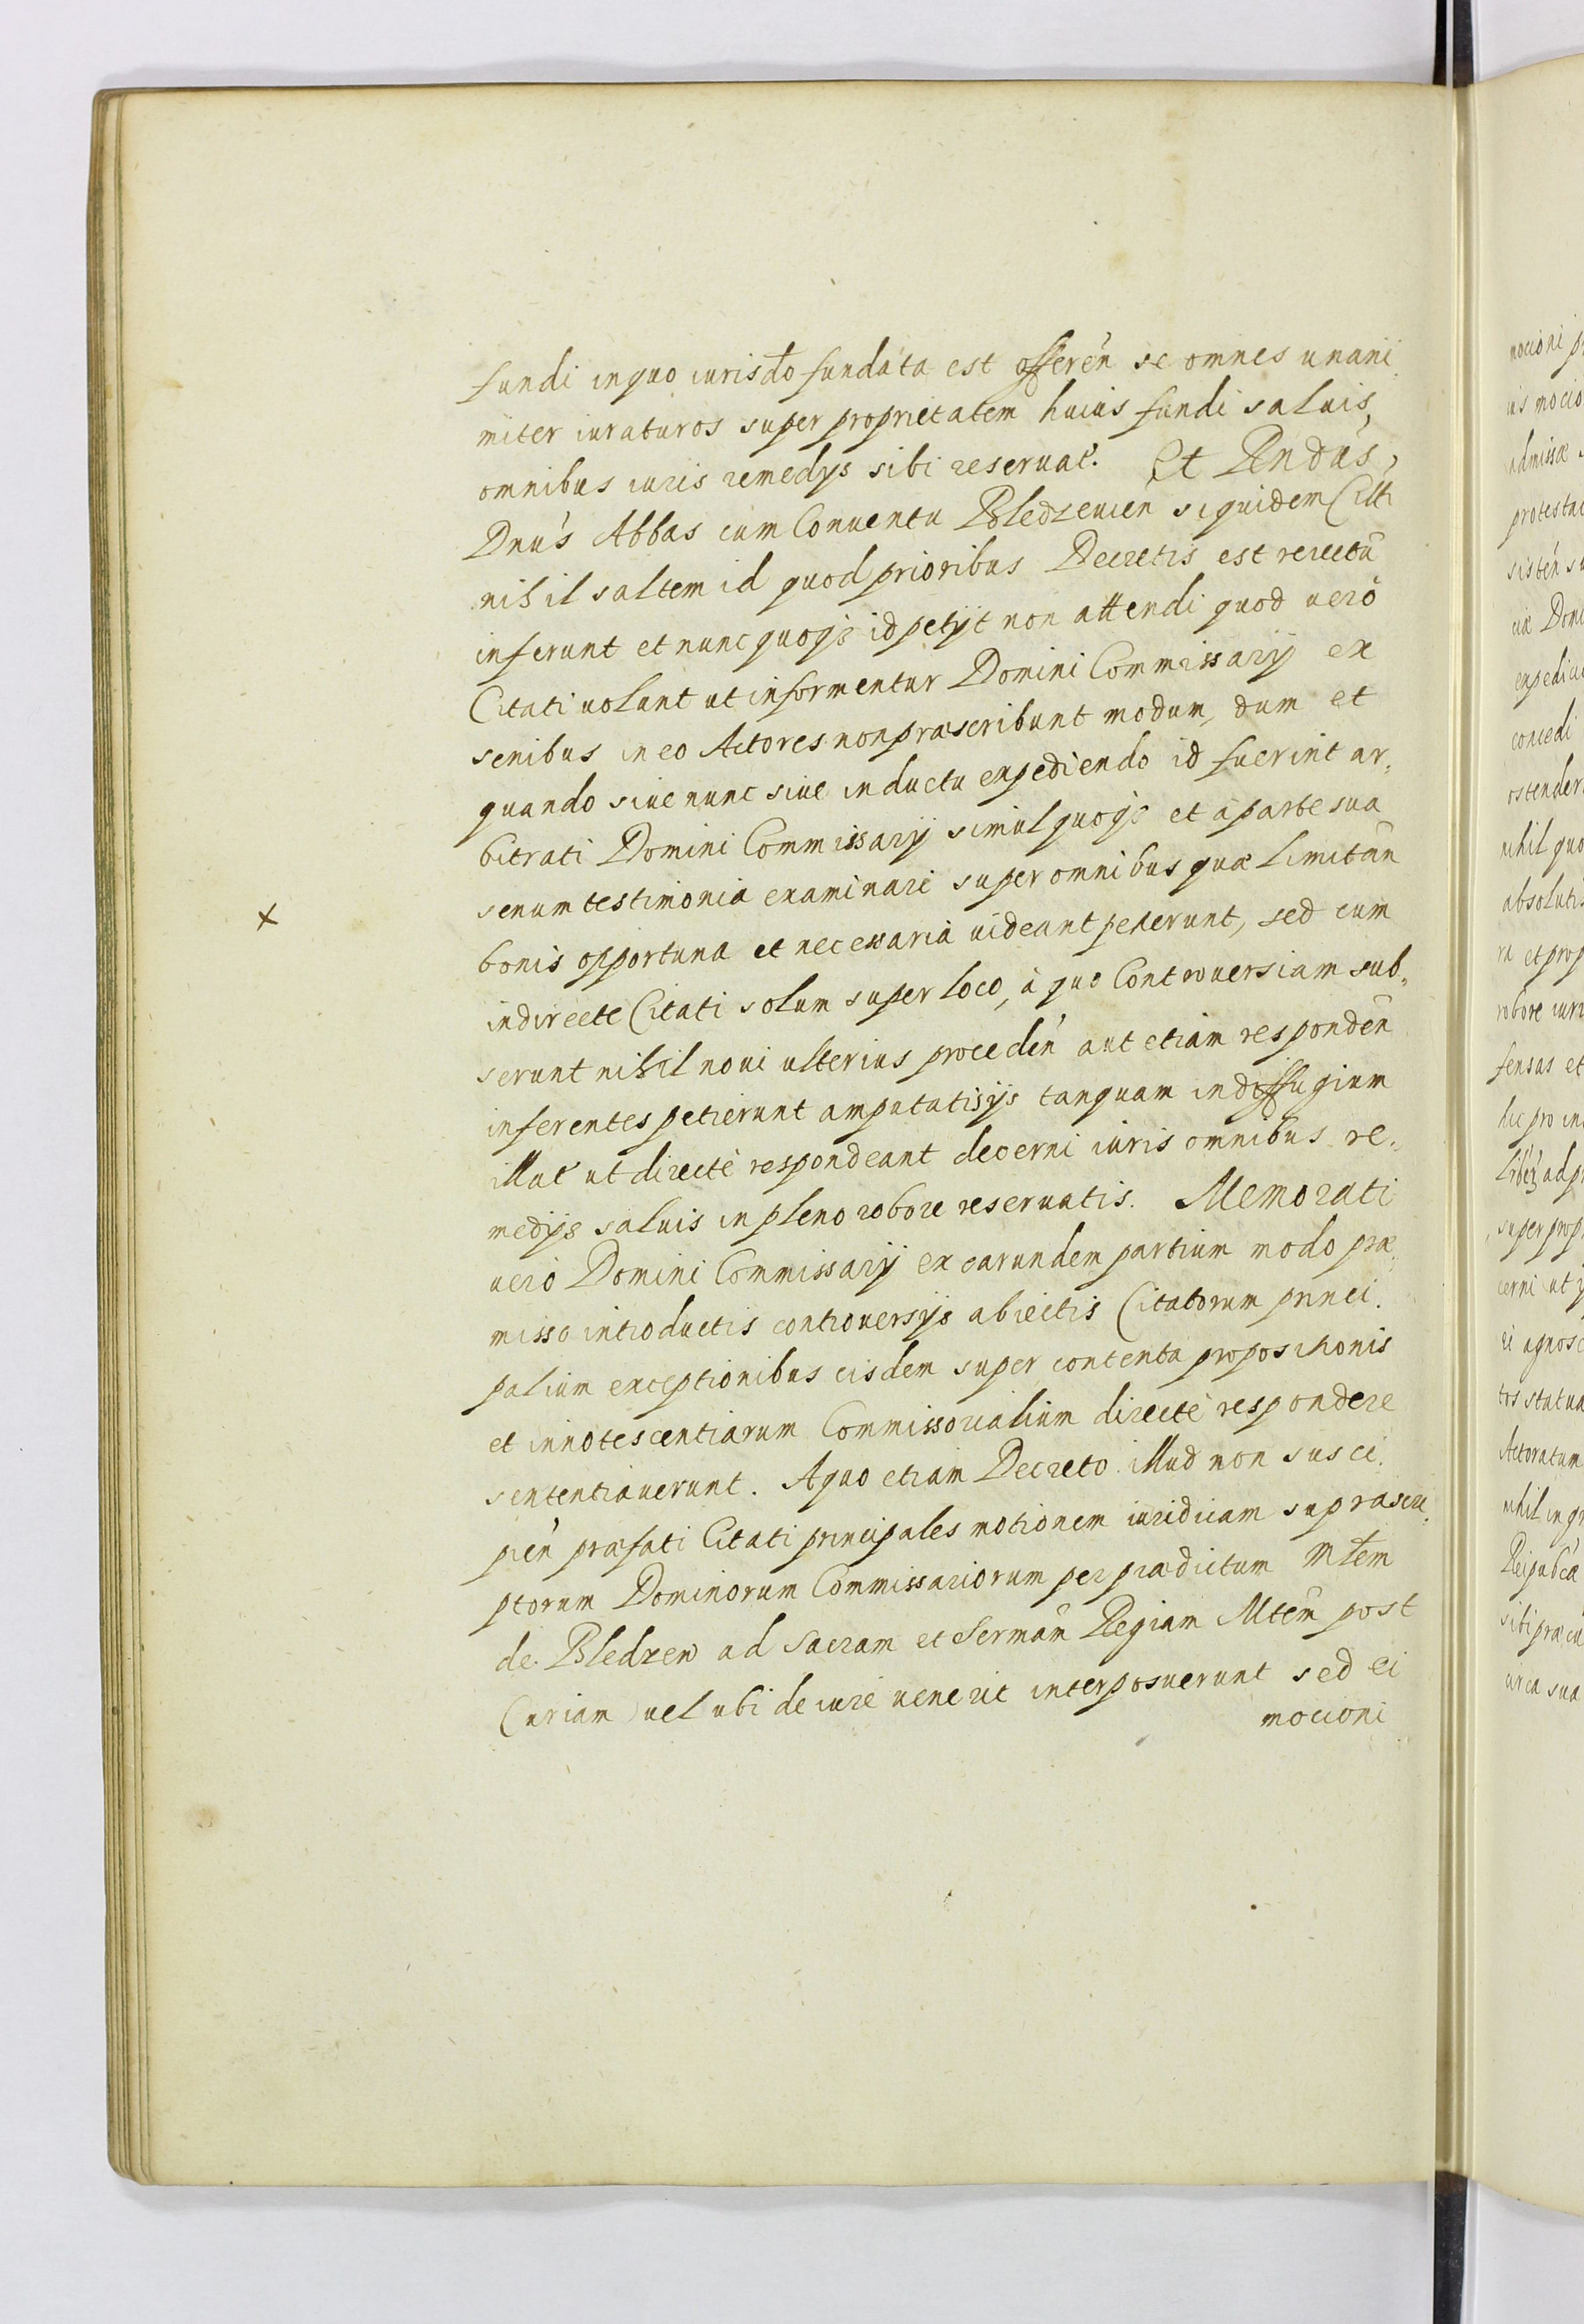 fundi in quo iurisdto fundata est offeren̄ se omnes unani
miter iuraturos super proprietatem huius fundi saluis,
omnibus iuris remedys sibi reseruat̄. Et Rndūs,
Dnūs Abbas cum Conuentu Bledzeuien siquidem Citti
nihil saltem id quod prioribus Decretis est reiectū
inferunt et nunc quoqȝ id petijt non attendi quod uerò
Citati uolunt ut informentur Domini Commissarij ex
senibus in eo Actores non præscribunt modum, dum et
quando siue nunc siue in ductu expediendo id fuerint ar,
bitrati Domini Commissarij simul quoqȝ et à parte sua
senum testimonia examinari super omnibus quæ limitan̄
bonis opportuna et necessaria uideant petierunt, sed cum
indirecte Citati solum super loco, à quo Controuersiam sub,
serunt nihil noui ulterius proceden̄ aut etiam responden̄
inferentes petierunt amputatis ijs tanquam in diffugium
illat̄ ut directè respondeant decerni iuris omnibus re,
medijs saluis in pleno robore reseruatis. Memorati
uero Domini Commissarij ex earundem partium modo præ,
misso introductis controuersijs abiectis Citatorum princi,
palium exceptionibus eisdem super contenta propositionis
et innotescentiarum Commissorialium directè respondere
sententiauerunt. A quo etiam Decreto illud non susci,
pien̄ præfati Citati principales motionem iuridicam suprascri,
ptorum Dominorum Commissariorum per prædictum Mtem
de Bledzew ad Sacram et Sermām Regiam Mtem̄ post
Curiam uel ubi de iure uenerit interposuerunt sed ei
mocioni
x
nocioni
ius mocio
admissæ
protestat
sisten̄ su
ciæ Domi
expedicio
concedi
ostender
nihil quo
absoluti
ra et prop
robore iuri
fensas et
hic pro in
ad p
super prop
cerni ut
ri agnosc
tos statua
Actoratum
nihil in gr
Reipubcā
sibi præcu
circa sua